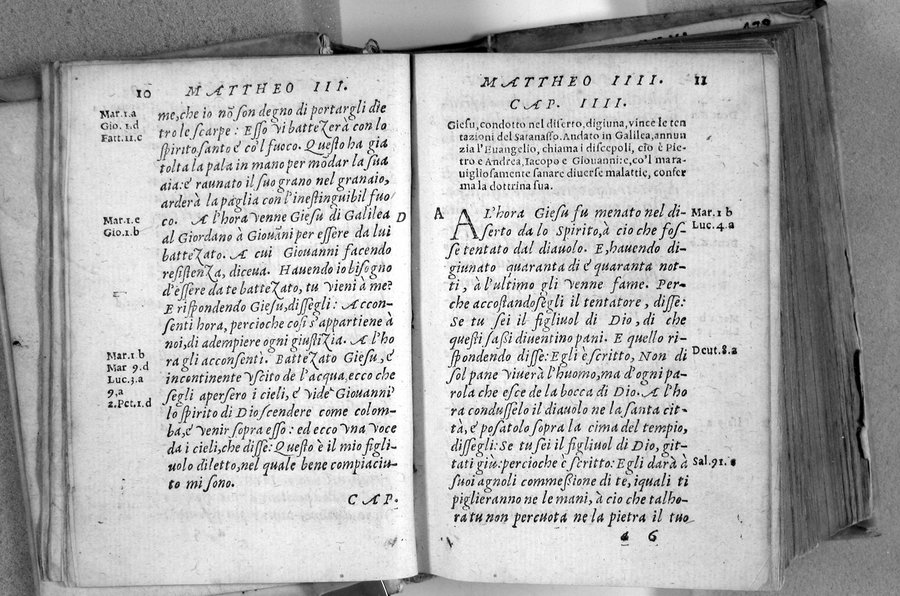 10 MATTHEO III.
Mar.1.a
Gio. 1.d
Fatt.11.c
me, che io nõ son degno di portargli die
tro le scarpe: Esso vi battezerà con lo
spirito santo e co'l fuoco. Questo ha gia
tolta la pala in mano per mõdar la sua
aia: e raunato il suo grano nel granaio,
arderà la paglia con l'inestinguibil fuo
Mar.1.c
Gio.1.b
co. A l'hora venne Giesu di Galilea D
al Giordano à Giouãni per essere da lui
battezato. A cui Giouanni facendo
resistenza, diceua. Hauendo io bisogno
d'essere da te battezato, tu vieni à me?
E rispondendo Giesu, dissegli: Accon-
senti hora, percioche cosi s'appartiene à
noi, di adempiere ogni giustizia. A l'ho
Mar.1.b
Mar 9.d
Luc.3.a
9,a
2.Pet.1.d
ra gli acconsentì. Battezato Giesu, é
incontinente vscito de l'acqua, ecco che
segli apersero i cieli, é vide Giouanni
lo spirito di Dio scendere come colom-
ba, é venir sopra esso: ed ecco vna voce
da i cieli, che disse: Questo è il mio figli-
uolo diletto, nel quale bene compiaciu-
to mi sono.
CAP.
MATTHEO IIII. 11
CAP. IIII.
Giesu, condotto nel diserto, digiuna, vince le ten
tazioni del Satanasso. Andato in Galilea, annun
zia l'Euangelio, chiama i discepoli, cio è Pie
tro e Andrea, Iacopo e Giouanni: e, co'l mara-
uigliosamente sanare diuerse malattie, confer
ma la dottrina sua.
A AL'hora Giesu fu menato nel di- Mar.1 b
serto da lo Spirito, à cio che fos- Luc.4.a
se tentato dal diauolo. E, hauendo di-
giunato quaranta di é quaranta not-
ti, à l'ultimo gli venne fame. Per-
che accostandosegli il tentatore, disse:
Se tu sei il figliuol di Dio, di che
questi sassi diuentino pani. E quello ri-
spondendo disse: Egli è scritto, Non di Deut.8.a
sol pane viuerà l'huomo, ma d'ogni pa-
rola che esce de la bocca di Dio. A l'ho
ra condusselo il diauolo ne la santa cit-
tà, é posatolo sopra la cima del tempio,
dissegli: Se tu sei il figliuol di Dio, git-
tati giù: percioche è scritto: Egli darà à Sal.91.
suoi agnoli commessione di te, i quali ti
piglieranno ne le mani, à cio che talho-
ra tu non percuota ne la pietra il tuo
4 6